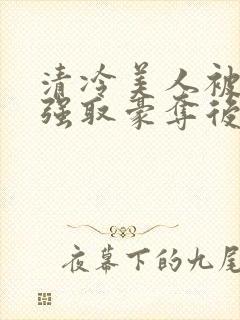 清冷美人被
强取豪夺後
夜幕下的九尾